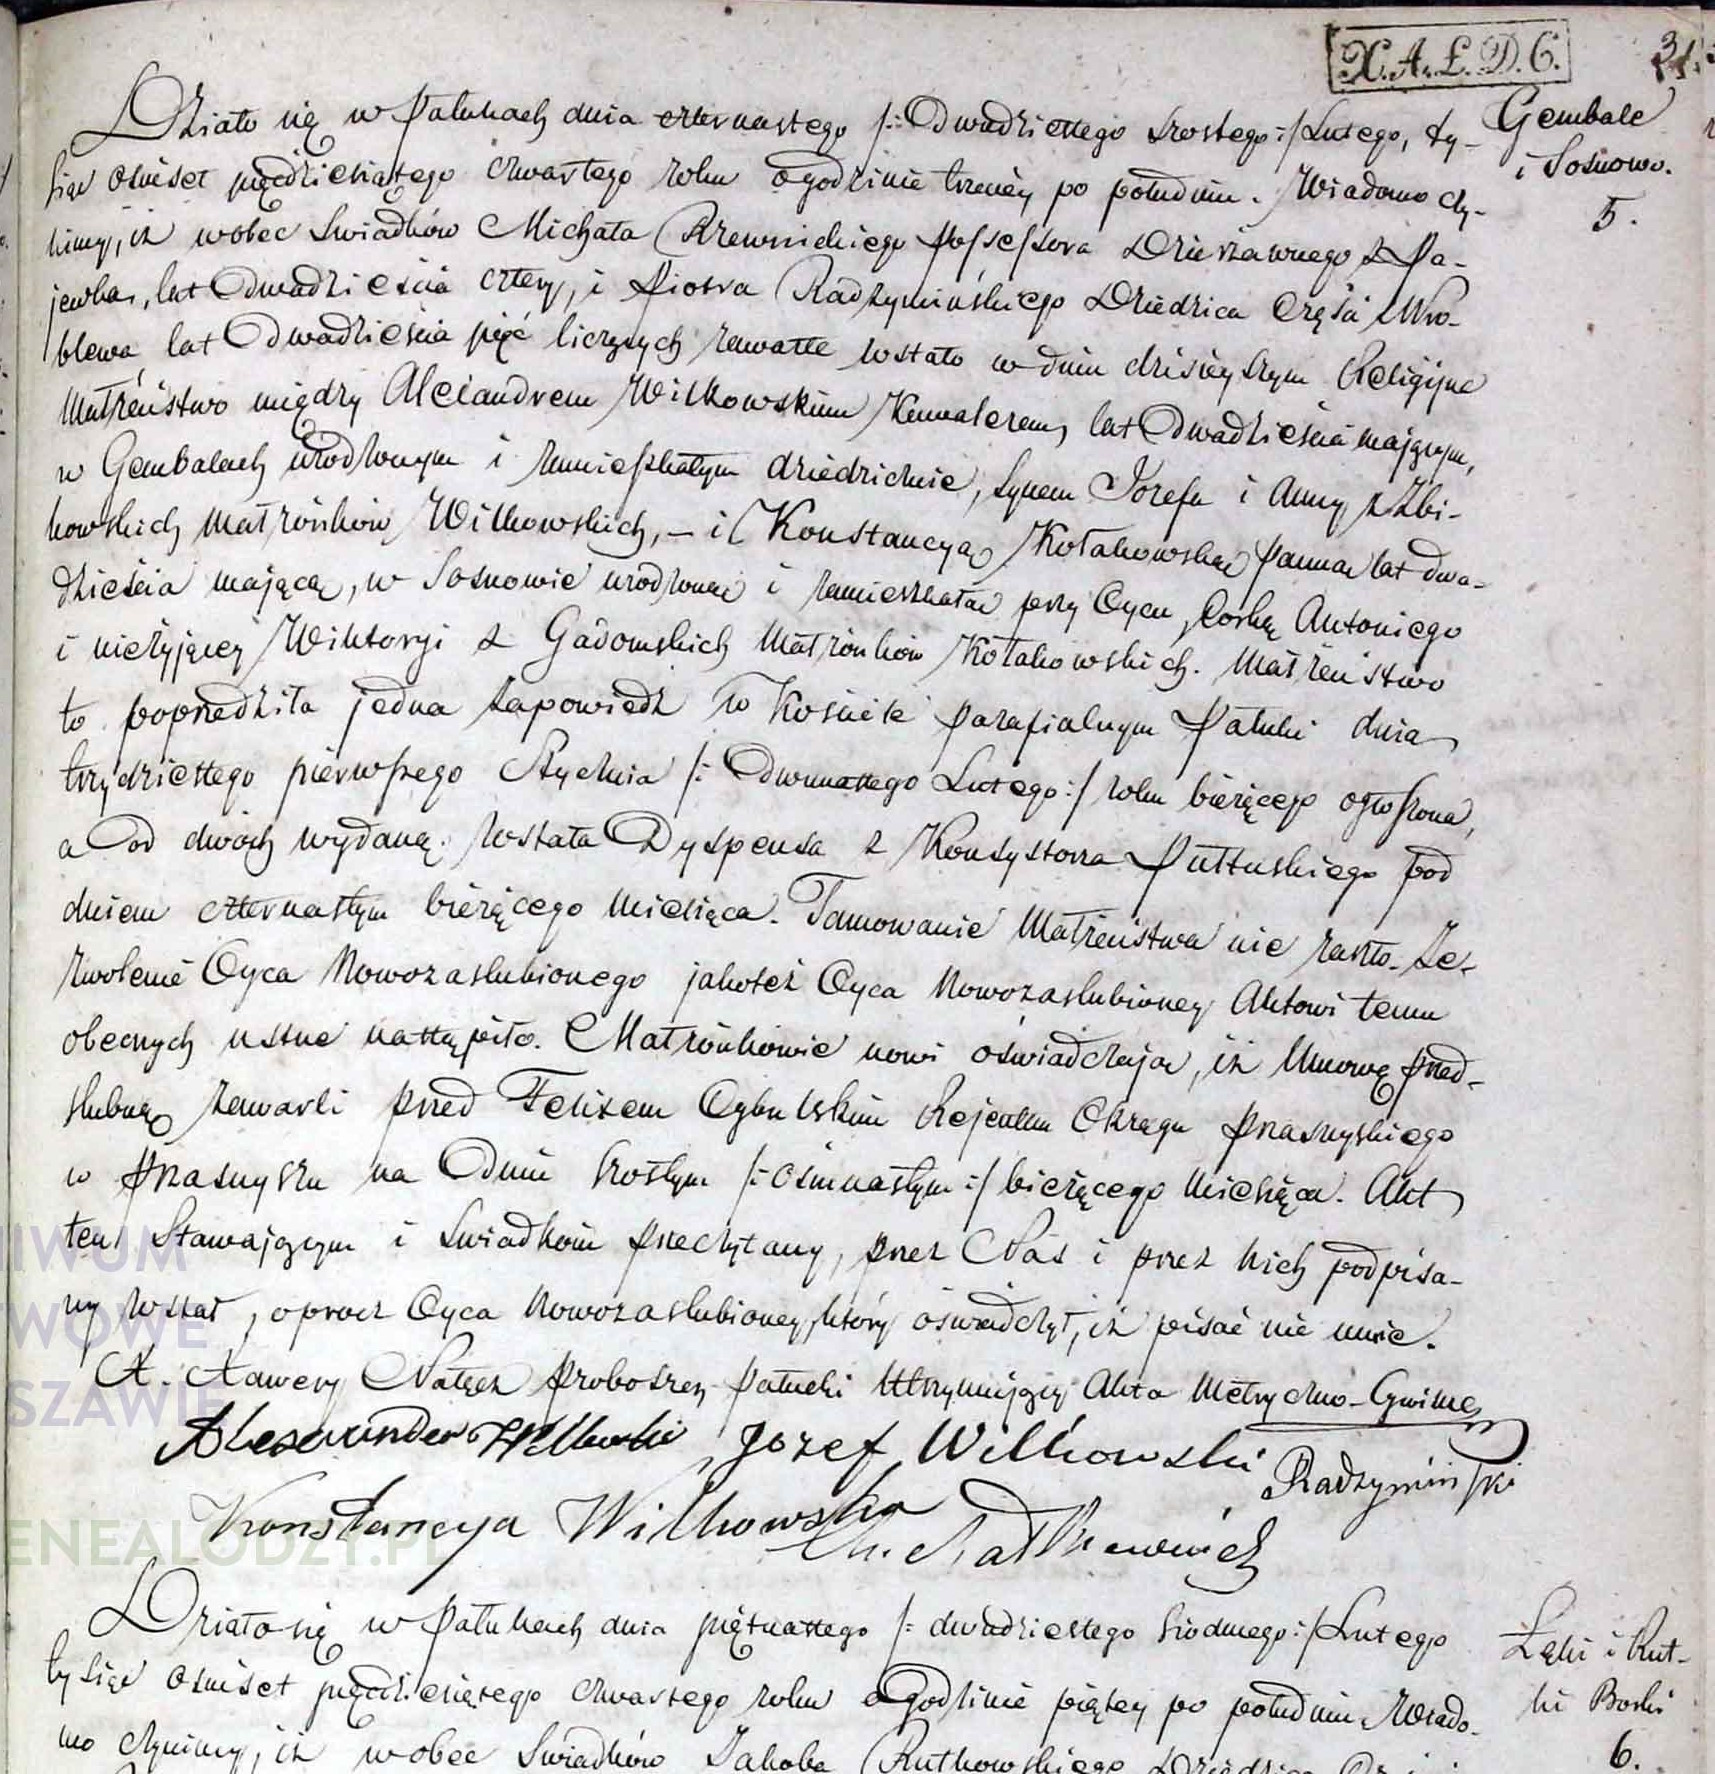 X. A. Ł. D. C.
31.
Gembale
i Sosnowo.
5.
Działo się w Pałukach dnia czternastego /: Dwudziestego szostego :/ Lutego, ty-
siąc ośmset pięćdziesiątego czwartego roku o godzinie trzeciey po południu. Wiadomo czy-
nimy, iż wobec Swiadków Michała Rzewnickiego Possessora Dzierzawnego z Pa-
jewka, lat Dwadzieścia cztery, i Piotra Radzyminskiego Dziedzica Częsci Wro-
blewa lat Dwadzieścia pięć liczących zawarte zostało w dniu dzisieyszym Religijne
Małżeństwo między Alexandrem Wilkowskim Kawalerem, lat Dwadzieścia mającym,
w Gembalach urodzonym i zamieszkałym dziedzicznie, synem Jozefa i Anny z Zbi-
kowskich Małżonków Wilkowskich, – i Konstancyą Kołakowską Panną lat dwa-
dzieścia mającą, w Sosnowie urodzoną i zamieszkałą przy Oycu, Corką Antoniego
i nieżyjącey Wiktoryi z Gadomskich Małżonków Kołakowskich. Małżeństwo
to poprzedziła jedna zapowiedź w Kościele parafialnym Pałuki dnia
trzydziestego pierwszego Stycznia /: Dwunastego Lutego :/ roku bieżącego ogłoszona,
a od dwóch wydaną została Dyspensa z Konsystorza Pułtuskiego pod
dniem czternastym bieżącego miesiąca. Tamowanie Małżeństwa nie zaszło. Ze-
zwolenie Oyca Nowozaslubionego jakoteż Oyca Nowozaslubioney Aktowi temu
obecnych ustne nastąpiło. Małżonkowie nowi oświadczają, iż Umowę przed-
slubną zawarli przed Felixem Rejentem Okręgu Przasnyskiego
w Przasnyszu na Dniu szóstym /: ośmnastym :/ bieżącego miesiąca. Akt
ten Stawającym i Swiadkom przeczytany, przez Nas i przez nich podpisa-
ny został, oprocz Oyca Nowozaslubioney, który oświadczył, iż pisać nie umie.
X. Xawery Nałęcz Proboszcz Pałucki Utrzymujący Akta Metryczno-Cywilne
Alexander Wilkowski, Jozef Wilkowski Radzyminski
Konstancya Wilkowska
Działo się w Pałukach dnia piętnastego /: dwudziestego siodmego :/ Lutego
tysiąc ośmset pięćdziesiątego czwartego roku o godzinie piątey po południu. Wiado-
mo czynimy, iż wobec Swiadków Jakoba Rutkowskiego Dziedzica
Łęki i Rut-
ki Borki
6.